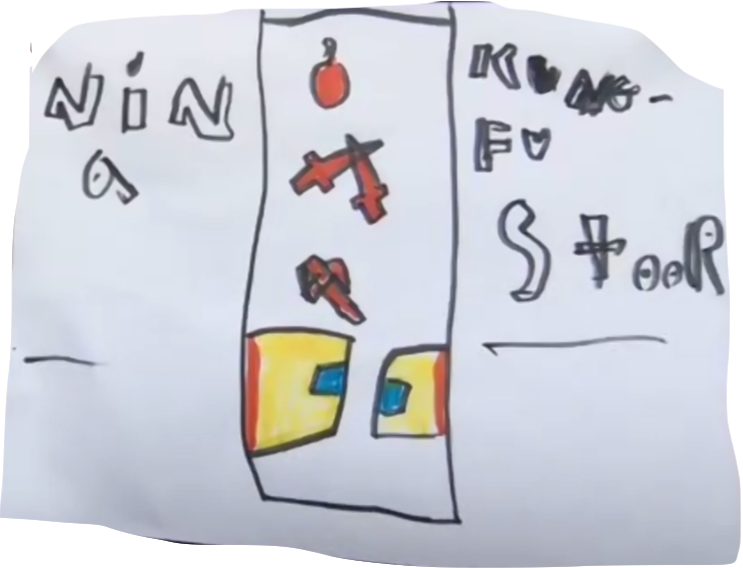 NiN
a
KUNG-
FU
StooR